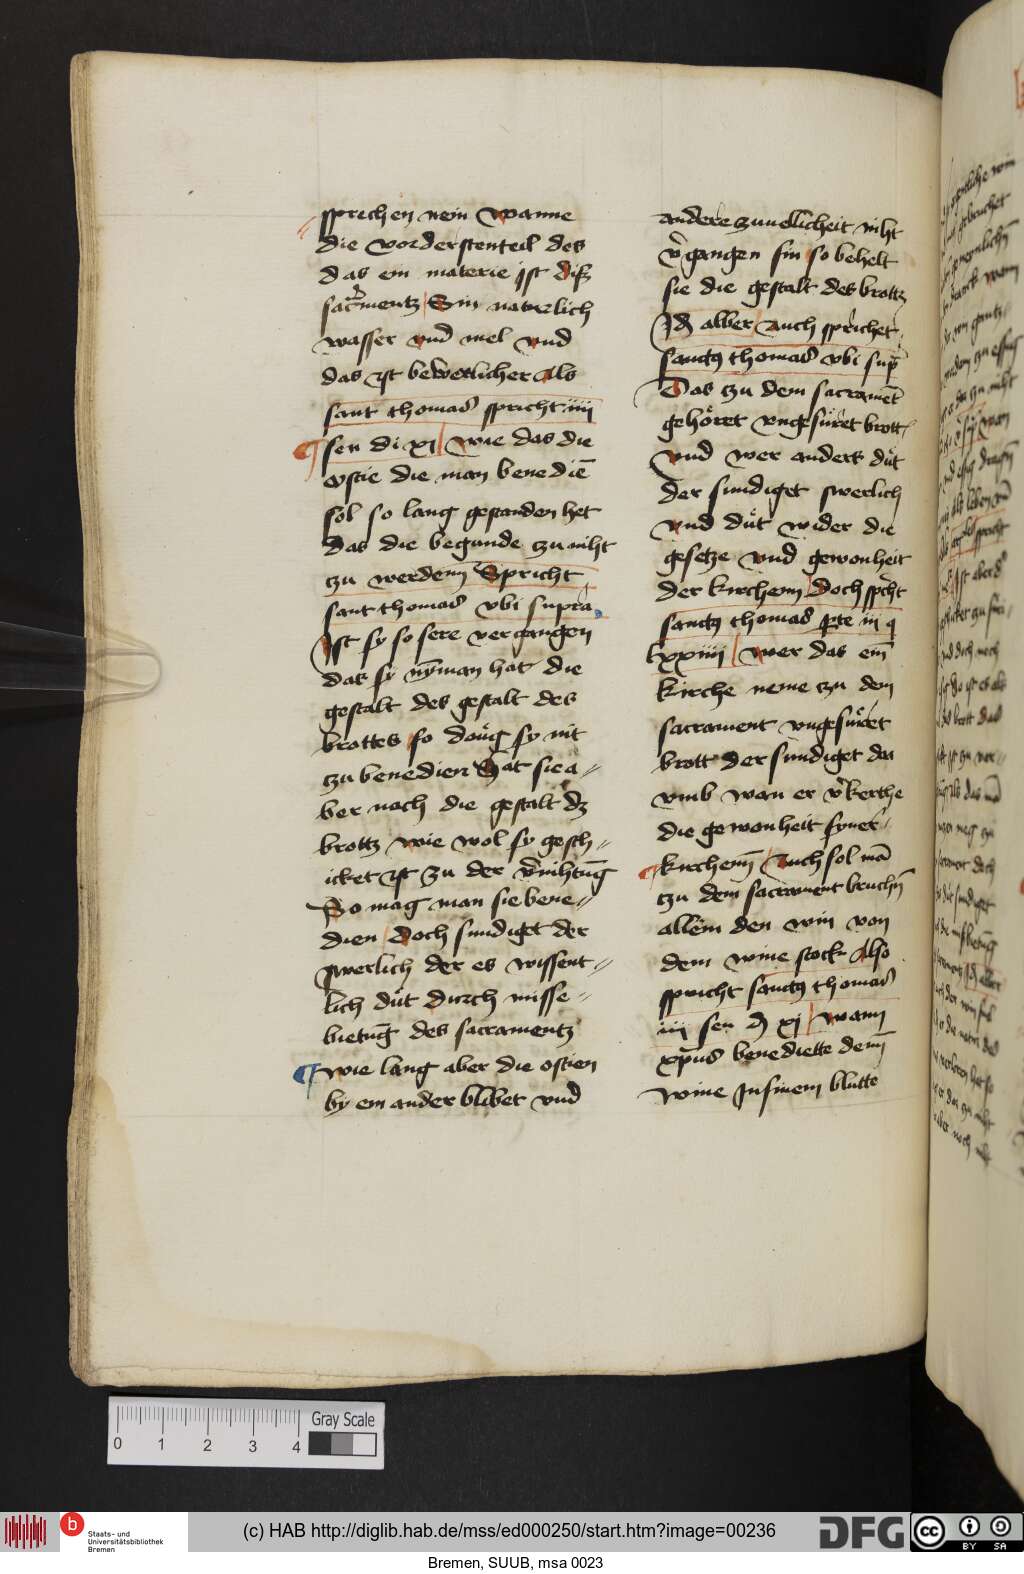 sprechen nein wanne
die vorderstenteil des
das ein materie jst diß
sacramentz Sin naturlich
wasser vnd mel vnd
das ist bewerlicher Als
sant thomas spricht iiii
sen di xi wie das die
ostie die man benediē
sol so lang gestanden het
das die begunde zu niht
zu werdenn Spricht
sant thomas vbi supra
Ist sy so sere vergangen
das sy nyman hat die
gestalt des gestalt des
brottes so doug sy nit
zu benedien Hat sie a⸗
ber noch die gestalt dz
brottz wie wol sy gesch⸗
icket ist zu der v̄nihtūg
So mag man sie bene⸗
dien Doch sundiget der
swerlich der es wissent⸗
lich dut durch misse⸗
bietūg des sacramentz
wie lang aber die ostien
by ein ander blibet vnd
andere zuuellicheit niht
v̄gangen sin so behelt
sie die gestalt des brottz
Id alber Auch sprichet
sanctus thomas vbi sup̄
Das zu dem sacramēt
gehöret vngesuret brott
vnd wer anders dut
der sundiget swerlich
vnd dut wider die
gesetze vnd gewonheit
der kirchenn doch spcht
sanctus thomas pte iii q
lxxiiii wer das ein
kirche neme zu dem
sacrament vngesuret
brott der sundiget dar
vmb wan er v̄kerthe
die gewonheit syner⸗
kirchenn Auch sol mā
zu dem sacrament bruchn̄
allein den win von
dem wine stock Also
spricht sanctus thomas
iiii sen d xi wann
xp̄us benediette denn
wine Jn sinem blutte
0 1 2 3 4
Gray Scale
b
Staats- und
Universitätsbibliothek
Bremen
(c) HAB http://diglib.hab.de/mss/ed000250/start.htm?image=00236
DFG
cc
BY SA
Bremen, SUUB, msa 0023